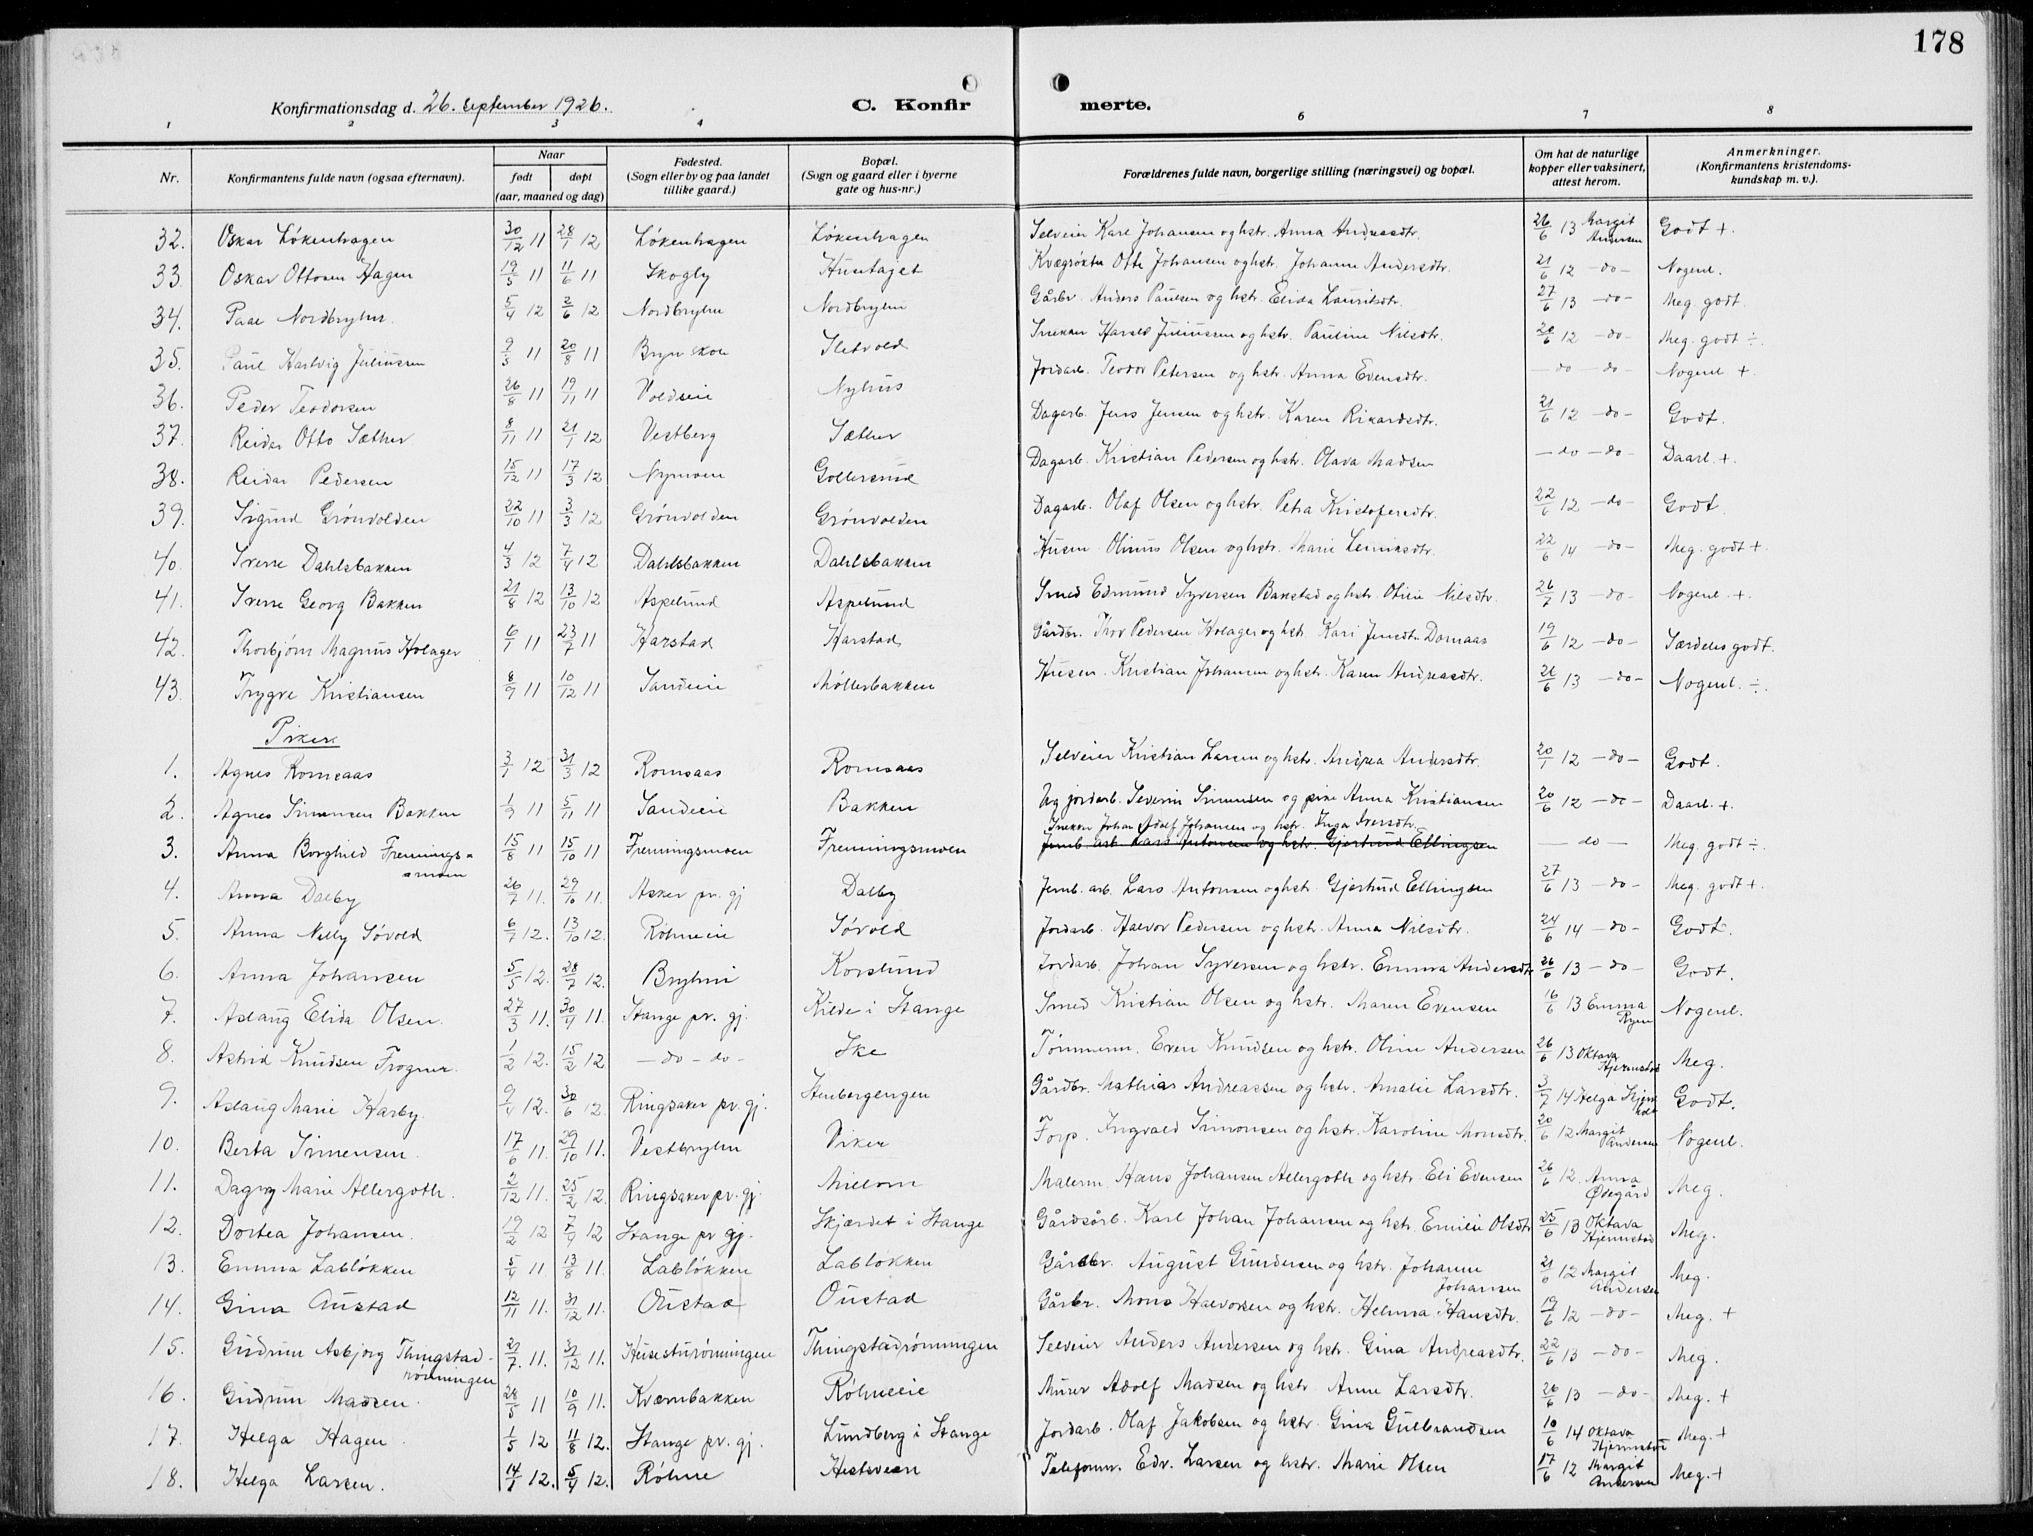 178
Konfirmationsdag d. 26. september 1926. C. Konfir merte.
1 2 3 4 6 7 8
Nr. Konfirmantens fulde navn (ogsaa efternavn). Naar født døpt (aar, maaned og dag) Fødested. (Sogn eller by og paa landet tillike gaard.) Bopæl. (Sogn og gaard eller i byerne gate og hus-nr.) Forældrenes fulde navn, borgerlige stilling (næringsvei) og bopæl. Om hat de naturlige kopper eller vaksinert, attest herom. Anmerkninger. (Konfirmantens kristendoms-kundskap m. v.).
32. Oskar Løkenhagen 30/12 11 28/1 12 Løkenhagen Løkenhagen Selveier Karl Johansen og hstr. Anna Andreasdtr. 26/6 13 Margit Andersen Godt +.
33. Oskar Ottosen Hagen 19/5 11 11/6 11 Skogly Otto Johansen og hstr. Johanne Andersdtr. 21/6 12 -do- Nogenl.
34. Paal Nordbryhn. 5/4 12 2/6 12 Nordbryhn Nordbryhn Gårbr. Anders Paulsen og hstr. Elida Lauritsdtr. 27/6 13 -do- Meg. godt.
35. Paul Hartvig Juliussen 9/3 11 20/8 11 Bryn skole Sletvold Snekker Harald Juliussen og hstr. Pauline Nilsdtr. 20/6 12 -do- Meg. godt ÷.
36. Peder Teodorsen 26/8 11 19/11 11 Voldseie Nyhus Jordarb. Teodor Petersen og hstr. Anna Evensdtr. -do -do- Nogenl +.
37. Reidar Otto Sæther 8/11 11 21/1 12 Vestberg Sæther Dagarb. Jens Jensen og hstr. Karen Rikardsdtr. 21/6 12 -do- Godt.
38. Reidar Pedersen 15/12 11 17/3 12 Nymoen Gollersrud Dagarb. Kristian Pedersen og hstr. Olava Madsen -do -do- Daarl. +.
39. Sigurd Grønvolden 22/10 11 3/3 12 Grønvolden Grønvolden Dagarb. Olaf Olsen og hstr. Petra Kristofersdtr. 22/6 12 -do- Godt.
40. Sverre Dahlsbakken 4/3 12 7/4 12 Dahlsbakken Dahlsbakken Husm. Olinus Olsen og hstr. Marie 22/6 14 -do- Meg. godt +.
41. Sverre Georg Bakken 21/8 12 13/10 12 Aspelund Aspelund Smed Edmund Syversen Bakstad og hstr. Oline Nilsdtr. 26/7 13 -do- Nogenl. +.
42. Thorbjørn Magnus Holager 6/1 11 23/7 11 Harstad Harstad Gårdbr. Thor Pedersen Holager og hstr. Kari Jensdtr. Domaas 19/6 12 -do- Særdeles godt.
43. Trygve Kristiansen 8/9 11 10/12 11 Sandeie Møllerbakken Husm. Kristian Johansen og hstr. Karen Andreasdtr. 26/6 13 -do- Nogenl. ÷.
Piker
1. Agnes Romsaas 3/1 12 31/3 12 Romsaas Romsaas Selveier Kristian Larsen og hstr. Andrea Andersdtr. 20/1 12 -do- Godt.
2. Agnes Simensen Bakken 1/9 11 5/11 11 Sandeie Bakken Ug. jordarb. Severin Simensen og pike Anna Kristiansen 20/6 12 -do- Daarl. +.
Snekker Johan Adolf Johansen og hstr. Inga Iversdtr.
3. Anna Borghild Frennings-moen 15/8 11 15/10 11 Frenningsmoen Frenningsmoen Jernb. arb. Lars Antonsen og hstr. Gjertrud Ellingsen - do - Meg. godt ÷.
4. Anna Dalby 26/7 11. 29/10 11. Asker pr. gj Dalby Jernb. arb. Lars Antonsen og hstr. Gjertrud Ellingsen 27/6 13 -do- Meg. godt +.
5. Anna Nelly Søvold 6/7 12. 13/10 12. Rohneeie Søvold Jordarb. Halvor Pedersen og hstr. Anna Nilsdtr. 24/6 14 -do- Godt.
6. Anna Johansen 5/5 12. 28/7 12. Bryhni Korslund Jordarb. Johan Syversen og hstr. Emma Andersdtr 26/6 13 -do- Godt.
7. Aslaug Elida Olsen. 27/3 11. 30/4 11. Stange pr. gj. Kilde i Stange Smed Kristian Olsen og hstr. Maren Evensen 16/6 13 Emma Ryen Nogenl.
8. Astrid Knudsen Frogner. 1/2 12. 15/2 12 -do-do- Ske Tømmerm. Even Knudsen og hstr. Oline Andersen 26/6 13 Oktava Hjermstad Meg.
9. Aslaug Marie Harby. 9/4 12. 30/6 12. Ringsaker pr. gj. Stenbergengen Gårdbr. Mathias Andreassen og hstr. Amalie Larsdtr. 3/7 14 Helga Godt.
10. Berta Simensen. 17/6 11. 29/10 11. Vestbryhn Viken Forp. Ingvald Simonsen og hstr. Karoline Monsdtr. 20/6 12 Margit Andersen Nogenl.
11. Dagny Marie Allergoth. 2/12 11. 25/2 12. Ringsaker pr. gj. Mielom Malerm. Hans Johansen Allergoth og hstr. Eli Evensen 26/6 12. Anna Ødegård Meg.
12. Dortea Johansen. 19/2 12 7/4 12 Stange pr gj. Skjærdet i Stange Gårdsarb. Karl Johan Johansen og hstr. Emilie Olsdtr 25/6 13 Oktava Hjermstad Meg.
13. Emma Labløkken 5/4 11. 13/8 11. Labløkken Labløkken Gårdbr. August Gundersen og hstr. Johanne Johansen 21/6 12 Margit Andersen Meg.
14. Gina Austad 12/11 11. 31/12 11. Oustad Oustad Gårbr. Mons Halvorsen og hstr. Helma Hansdtr. 19/6 12 -do- Meg. +
15. Gudrun Asbjørg Thingstad-rønningen 27/7. 11. 31/12 11. Husesturønningen Thingstadrønningen Selveier Anders Andersen og hstr. Gina Andreasdtr. 22/6 13 -do- Meg.
16. Gudrun Madsen. 28/5 11 10/9 11. Kværnbakken Røhneeie Murer Adolf Madsen og hstr. Anne Larsdtr. 26/6 13 -do- Meg. +
17. Helga Hagen. 1/5 12 11/8 12. Stange pr. gj. Lundberg i Stange Jordarb. Olaf Jakobsen og hstr. Gina Gulbrandsen 10/6 14 Oktava Hjermstad Meg. +
18. Helga Larsen. 14/1 12. 5/4 12. Røhne Hestsveen Telefonm. Edv. Larsen og hstr. Marie Olsen 17/6 12 Margit Andersen Meg. +